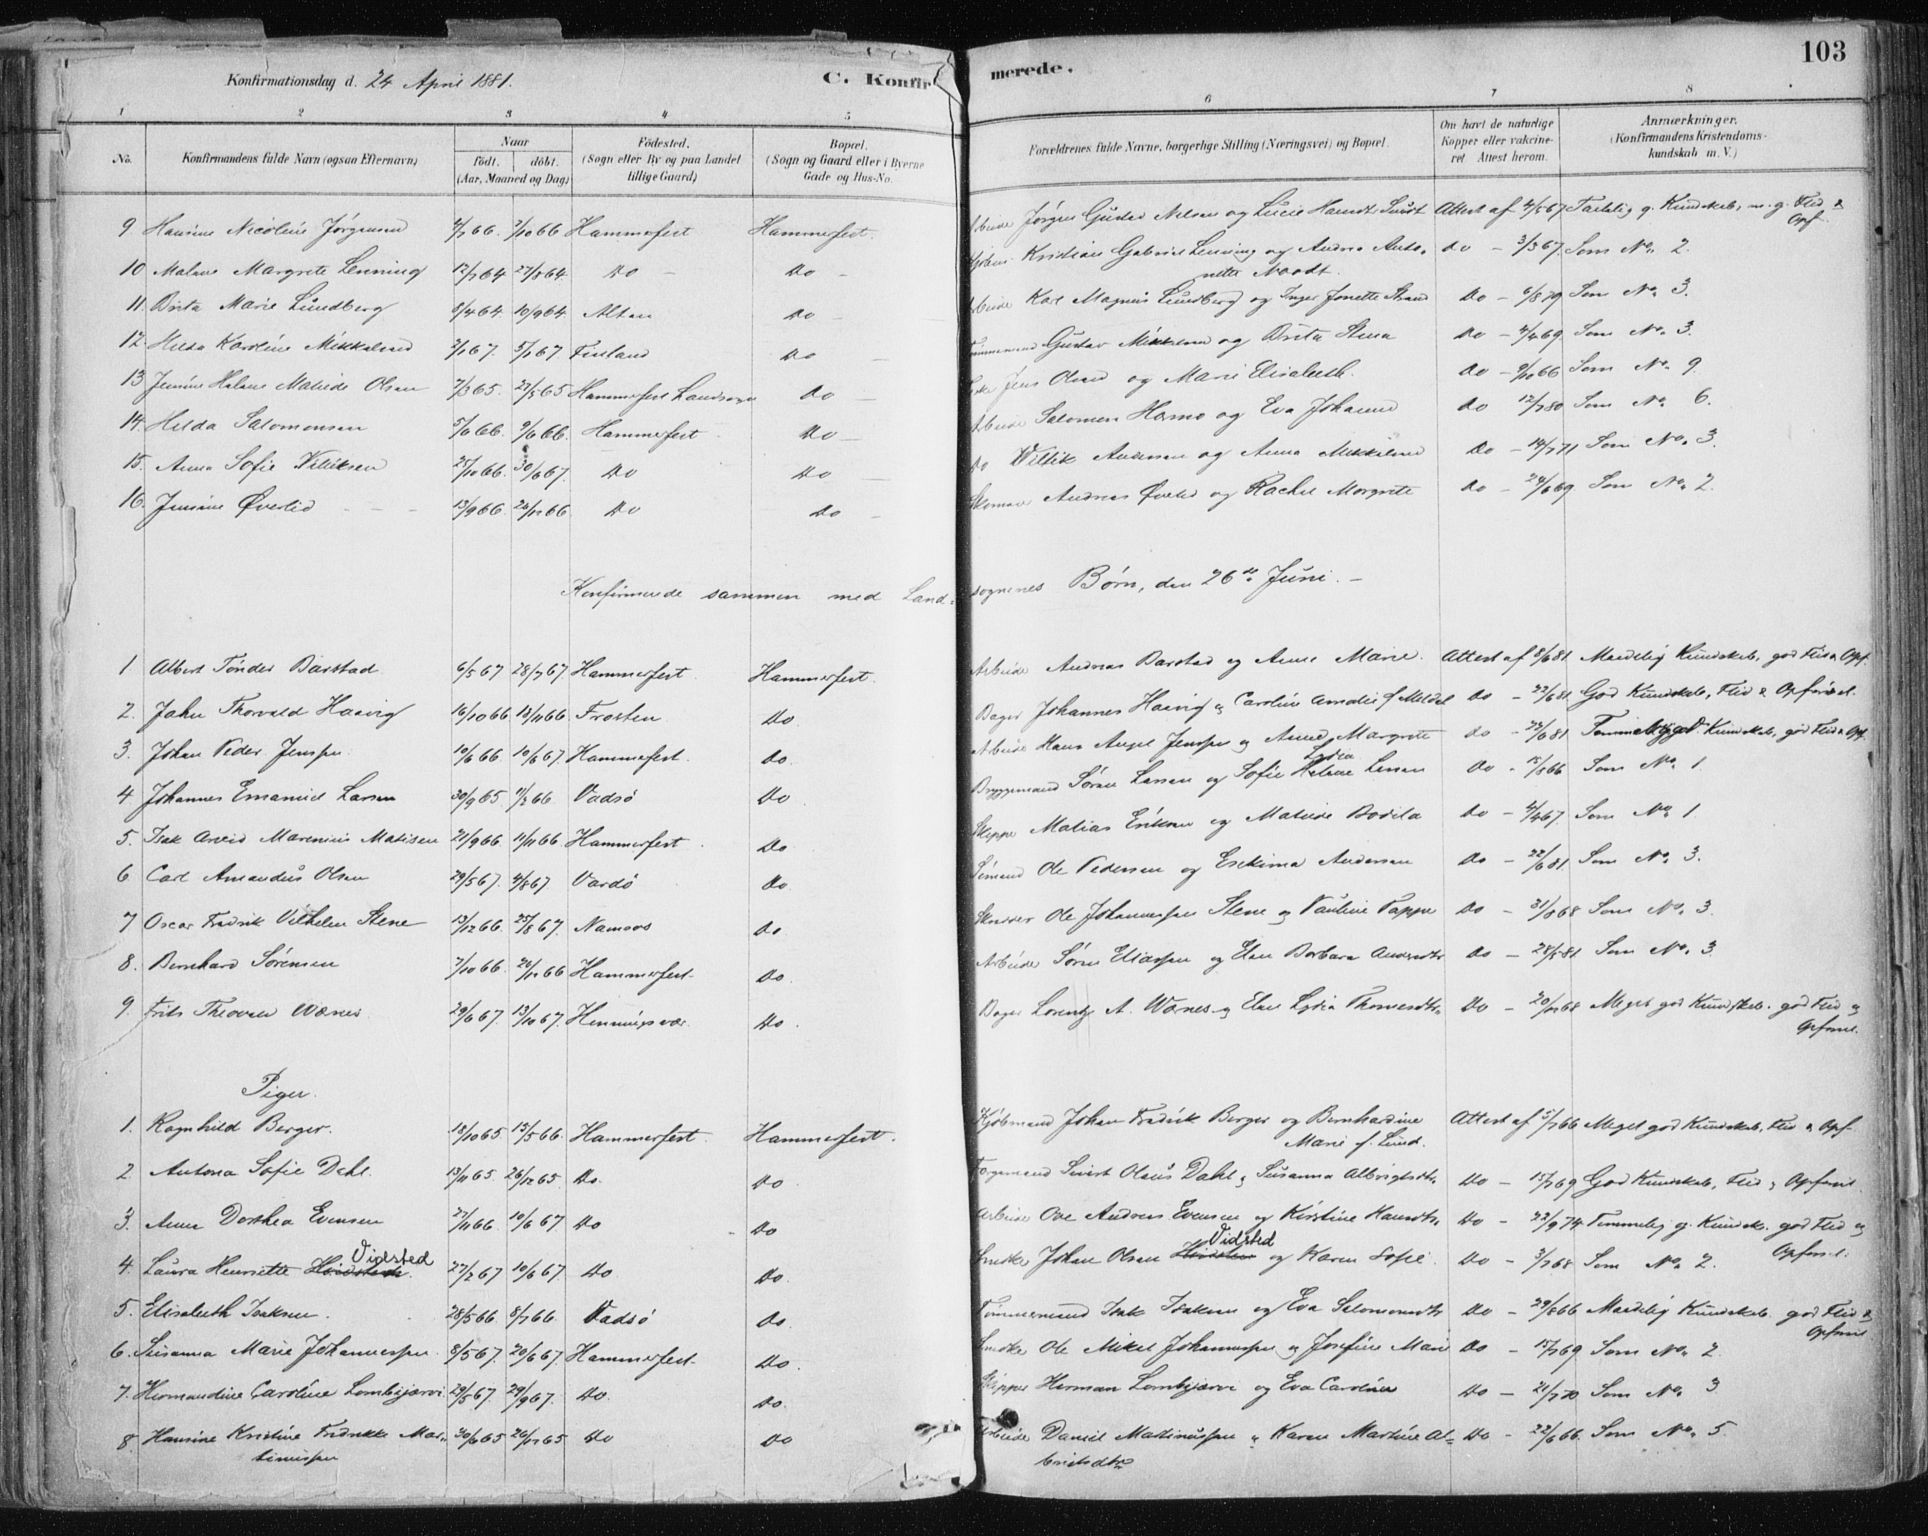 103
Konfirmationsdag d. 24 April 1881.
C. Konfirmerede.
1 2 3 4 5 6 7 8
No. Konfirmandens fulde Navn (ogsaa Efternavn) Naar født. døbt. (Aar, Maaned og Dag) Fødested. (Sogn eller By og paa Landet tillige Gaard) Bopæl. (Sogn og Gaard eller i Byerne Gade og Hus-No. Forældrenes fulde Navne, borgerlige Stilling (Næringsvei) og Bopæl. Om havt de naturlige Kopper eller vakcineret. Attest herom. Anmærkninger. (Konfirmandens Kristendomskundskab m. V.)
9 Hansine Nicoline Jørgensen 10/66 Hammerfest Hammerfest. Jørgen Gustav Nilsen og Lucie Attest af 4/5 67 g. Kundskab, m. g. Flid & Opf.
10 Malene Margrete Lenning 12/7 64 27/8 64 Do Do Kristian Gabriel Lenning og Andrea Antonette Noodt. do 3/3 67. Som No. 2.
11. Brita Marie Lundberg 8/4 64 10/9 64 Alten Do Karl Magnus Lundberg og Inger Jonette Strand Do 6/8 79 Som No. 3.
12. Hilda Karoline Mikkelsen 67. 67 Finland Do Gustav Mikkelsen og Brita Stina Do 4/4 69 Som No. 3.
13 Jensine Halene Matilde Olsen 7/3 65 27/5 65 Hammerfest Landsogn Do Jens Olsen og Marie Elisabeth. do 9/10 66 Som No. 9.
14. Hilda Salomonsen 5/6 66. 9/6 66. Hammerfest Do Arbeider Salomon Hermo og Eva Johanna do 12/7 80 Som No. 6.
15. Anna Sofie Villiksen 25/10 66. 30/6 67. Do Do Do Willik Andersen og Anna Mikkelsen Do 14/7 71 Som No. 3.
16. Jensine Øverlid 13/9 66. 26/12 66. Do Do Skomager Andreas Øverlid og Rachel Margrete do 24/6 69 Som No. 2.
Konfirmerede sammen med Landsognenes Børn, den 26de Juni.
1 Albert Tønder Barstad 6/5 67 28/7 67 Hammerfest. Hammerfest. Arbeider Andreas Barstad og Anne Marie. Attest af 8/6 81 Maadelig Kundskab, god Flid & Opf.
2. John Thorvald Haavig 16/10 66 13/11 66 Frosten Do Bager Johannes Haavig & Caroline Amalie f. Meldal do 22/6 81 God Kundskab, Flid & Opførsel.
3. Johan Peder Jenssen. 10/6 66 10/6 67. Hammerfest. do. Arbeider Hans Angel Jenssen & Anne Margrete do 23/6 81. Temmelig god Kundskab, god Flid & Opf.
4 Johannes Emanuel Larsen 30/9 65. 66. Vadsø Do Bryggemand Søren Larsen og Sofie Lydia Helene Larsen Do 15/8 66 Som No. 1.
5. Isak Arvid Marenius Matisen 21/9 66 11/11 66 Hammerfest. Do Skipper Matias Eriksen og Matilde Bodila Do 4/4 67. Som No. 1
6 Carl Amandus Olsen 29/5 67. 4/8 67. Vardø Do Sømand Ole Pedersen og Esekima Andersen Do 22/6 81 Som No. 3.
7 Oscar Fredrik Vilhelm Stene 13/12 66. 25/8 67. Namsos do Skrædder Ole Johannessen Stene & Pauline Pappe Do 31/8 68 Som No. 3.
8. Bernhard Sørensen 7/10 66 26/12 66 Hammerfest. Do Arbeider Søren Eliassen og Elen Barbara Andersdtr do 28/5 81 Som No. 3.
9. Frits Theodor Wærnes 29/6 67. 13/10 67. Henningsvær. Do Bager Lorentz A. Wærnes & Elen Lydia Thomesdtr. Do 20/12 68 Meget god Kundskab, god Flid & Opførsel.
Piger.
1. Ragnhild Berger. 13/10 65 13/5 66. Hammerfest. Hammerfest. Kjøbmand Johan Fredrik Berger og Bernhardine Marie f. Lund. Attest af 5/7 66 Meget god Kundskab, Flid & Opf.
2 Antona Sofie Dahl. 13/11 65. 26/12 65. Do. Do. Sivert Olaus Dahl & Susanna Albrigtsdtr. Do 15/7 69 God Kundskab, Flid & Opførsel.
3. Anna Dorthea Evensen 27/11 66 10/6 67 Do Do Arbeider Ove Andreas Evensen og Kirstine Hansdtr. Do 22/9 74. Temmelig g. Kundsk. god Flid og Opførsel.
4. Laura Henriette Vidsted 27/2 67 10/6 67. Do Do. Snedker Johan Olsen Vidsted og Karen Sofie. Do 3/7 68 Som No. 2.
5. Elisabeth Isaksen. 28/5 66 8/7 66. Vadsø Do. Tømmermand Isak Isaksen og Eva Salomonsdtr Do 29/8 66 Maadelig Kundskab. god Flid & Opførsel
6. Susanna Marie Johannessen. 8/5 67. 20/6 67. Hammerfest. Do. Snedker Ole Mikel Johannessen & Josefine Marie do 15/7 69 Som No. 2.
7. Hermandine Caroline Lombjærvi 29/5 67. 29/9 67. Do. do. Skipper Herman Lombjærvi og Eva Caroline Do 21/7 70 Som No. 3.
8 Hansine Kristine Fredrikke Martinussen 30/6 65 26/12 65 Do Do Arbeider Daniel Martinussen & Karen Martine Albrigtsdtr Do 22/6 66. Som No. 5.